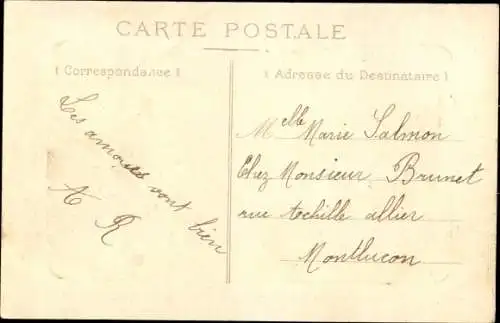 CARTE POSTALE
( Correspondance )
Les amours vont bien
A R
( Adresse du Destinataire )
Melle Marie Salmon
Chez Monsieur Brunet
rue Achille allier
Montluçon